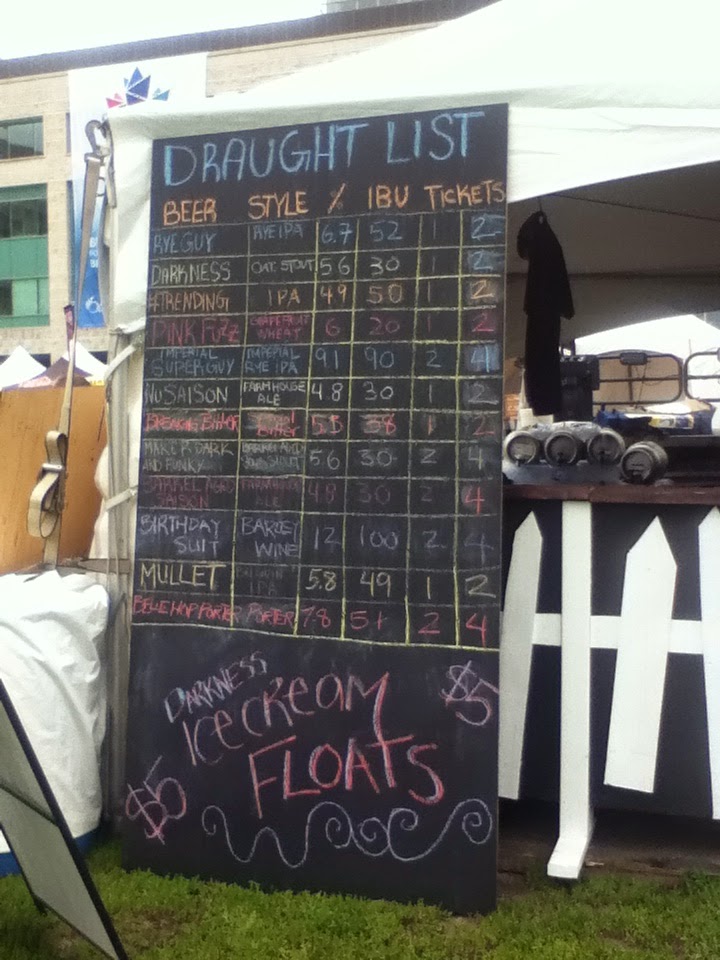 DRAUGHT LIST
BEER STYLE % IBU TICKETS
RYE GUY RYE IPA 6.7 52 1 2
DARKNESS OAT. STOUT 5.6 30 1 2
#TRENDING IPA 4.9 50 1 2
PINK FUZZ GRAPEFRUIT WHEAT 6 20 1 2
IMPERIAL SUPER GUY IMPERIAL RYE IPA 9.1 90 2 4
NU SAISON FARMHOUSE ALE 4.8 30 1 2
BREAKING BITTER BITTER 5.5 58 1 2
MAKE R DARK AND FUNKY 5.6 30 2 4
BARREL AGED SAISON FARMHOUSE ALE 4.8 30 2 4
BIRTHDAY SUIT BARLEY WINE 12 100 2 4
MULLET IPA 5.8 49 1 2
BELLE HOP PORTER PORTER 7.8 51 2 4
DARKNESS
ICE CREAM
FLOATS
$5
$5